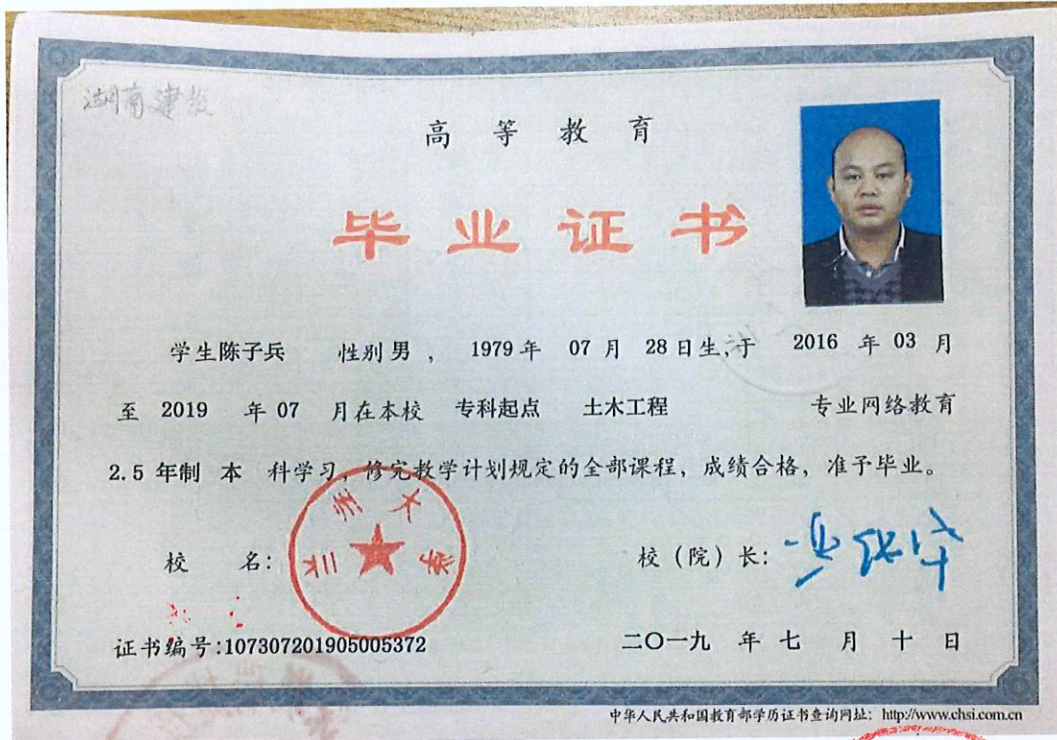 湖南建投
高等教育
毕业证书
学生陈子兵 性别男，1979年 07月 28日生，于 2016 年 03 月
至 2019 年 07 月在本校 专科起点 土木工程 专业网络教育
2.5 年制 本 科学习，修完教学计划规定的全部课程，成绩合格，准予毕业。
兰州大学
校 名：
校（院）长：
证书编号：107307201905005372
二〇一九 年 七 月 十 日
中华人民共和国教育部学历证书查询网址：http://www.chsi.com.cn